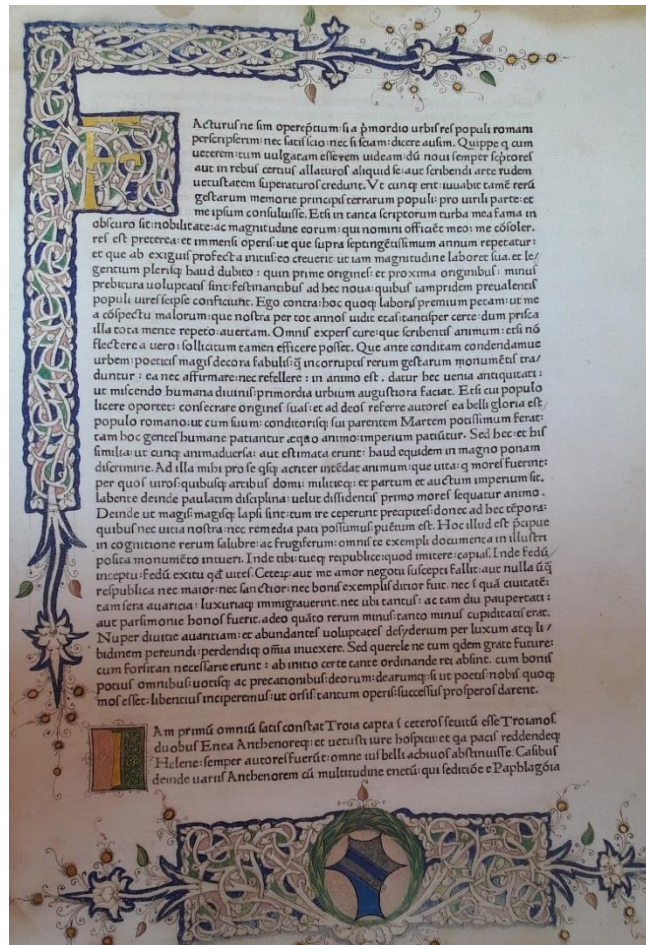 FActurus ne sim operep̄tium: si a p̄mordio urbis res populi romani
perscripserim: nec satis scio: nec si sciam: dicere ausim. Quippe q̄ cum
ueterem: tum uulgatam esse rem uideam: dū noui semper sc̄ptores
aut in rebus certius allaturos aliquid se: aut scribendi arte rudem
uetustatem superaturos credunt. Vt cunq; erit: iuuabit tamē rerū
gestarum memorie principis terrarum populi: pro uirili parte: et
me ipsum consuluisse. Et si in tanta scriptorum turba mea fama in
obscuro sit: nobilitate: ac magnitudine eorum: qui nomini officiēt meo: me cōsoler.
res est preterea: et immensi operis: ut que supra septingētissimum annum repetatur:
et que ab exiguis profecta initiis: eo creuerit: ut iam magnitudine laboret sua. et le/
gentium plerisq; haud dubito: quin prime origines: et proxima originibus: minus
prebitura uoluptatis sint: festinantibus ad hec noua: quibus iampridem preualentis
populi uires se ipse conficiunt. Ego contra: hoc quoq; laboris premium petam: ut me
a cōspectu malorum: que nostra per tot annos uidit etas: tantisper certe: dum prisca
illa tota mente repeto: auertam. Omnis expers cure: que scribentis animum: etsi nō
flectere a uero: sollicitum tamen efficere posset. Que ante conditam condendamue
urbem: poeticis magis decora fabulis: q̄ incorruptis rerum gestarum monumētis tra/
duntur: ea nec affirmare: nec refellere: in animo est. datur hec uenia antiquitati:
ut miscendo humana diuinis: primordia urbium augustiora faciat. Et si cui populo
licere oportet: consecrare origines suas: et ad deos referre autores ea belli gloria est
populo romano: ut cum suum: conditorisq; sui parentem Martem potissimum ferat:
tam hoc gentes humane patiantur æquo animo: imperium patiūtur. Sed hec: et his
similia: ut cunq; animaduersa: aut estimata erunt: haud equidem in magno ponam
discrimine. Ad illa mihi pro se q̄sq; acriter intēdat animum: que uita: q̄ mores fuerint:
per quos uiros: quibusq; artibus domi: militieq;: et partum et auctum imperium sit.
labente deinde paulatim disciplina: uelut dissidentis primo mores sequatur animo.
Deinde ut magis: magisq; lapsi sint: tum ire ceperunt precipites: donec ad hec tēpora:
quibus nec uitia nostra: nec remedia pati possumus puētum est. Hoc illud est p̄cipue
in cognitione rerum salubre: ac frugiferum: omnis te exempli documenta in illustri
posita monumēto intueri. Inde tibi: tueq; reipublice: quod imitere: capias. Inde fedū
inceptu: fedū exitu qđ uites. Ceteꝝ: aut me amor negotii suscepti fallit: aut nulla ūq̄
respublica nec maior: nec sanctior: nec bonis exemplis ditior fuit. nec ī quā ciuitatē:
tam sera auaricia: luxuriaq; immigrauerint. nec ubi tantus: ac tam diu paupertati:
aut parsimonie honos fuerit. adeo quāto rerum minus: tanto minus cupiditatis erat.
Nuper diuitie auaritiam: et abundantes uoluptates desyderium per luxum atq; li/
bidinem pereundi: perdendiq; om̄ia inuexere. Sed querele ne tum qdem grate future:
cum forsitan necessarie erunt: ab initio certe tante ordinande rei absint. cum bonis
potius omnibus: uotisq; ac precationibus: deorum: dearumq;: si ut poetis: nobis quoq;
mos esset: libentius inciperemus: ut orsis: tantum operis: successus prosperos darent.
IAm primū omniū satis constat Troia capta ī ceteros seuitū esse Troianos.
duobus Enea Anthenoreq;: et uetusti iure hospitii: et qa pacis reddendeq;
Helene: semper autores fuerūt: omne ius belli achiuos abstinuisse. Casibus
deinde uariis Anthenorem cū multitudine enetū: qui seditiōe e Paphlagōia